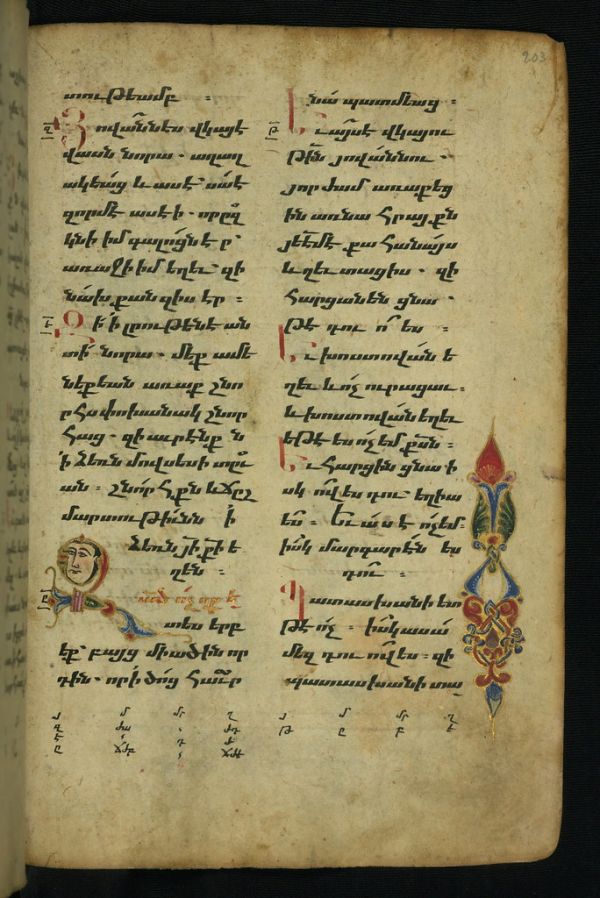 203
տութեամբ ։
Յովաննէս վկայէ
վասն նորա · աղաղ
ակեաց և ասէ՝ սա է
զորմէ ասէի · որ զ
կնի իմ գալոցն է՝ ը
առաջի իմ եղեւ · զի
նախ քան զիս էր ։
Զի ի լրութենէ ան
տի նորա · մեք ամե
նեքեան առաք շնո
րհս փոխանակ շնոր
հաց · զի աւրէնքն
ի ձեռն մովսեսի տվ
ան · շնորհքն և ճշմ
արտութիւնն ի
ձեռն յի քի ե
ղեն ։
զած ոչ ոք ետ
տես երբ
էք · բայց միածին որ
դին · որ ի ծոց հաւր
նա պատմեաց ։
Եւ այս է վկայու
թի յովաննու ·
յորժամ առաքեց
ին առ նա հրայքն
յեմէ քահանայս
և ղեւտացիս · զի
հարցանեն ցնա ·
թէ դու ո՞ ես ·
Եւ խոստովան ե
ղեւ և ոչ ուրացաւ ·
և խոստովան եղեւ
եթէ ես ոչ եմ քսն ։
Եւ հարցին ցնա ի
սկ ո՞վ ես դու եղիա
ես ։ Եւ ասէ ոչ եմ ·
իսկ մարգարեն ես
դու ։
Պատասխանի ետ
թէ ոչ ։ իսկ ասա
մեզ դու ո՞վ ես · զի
պատասխանի տա